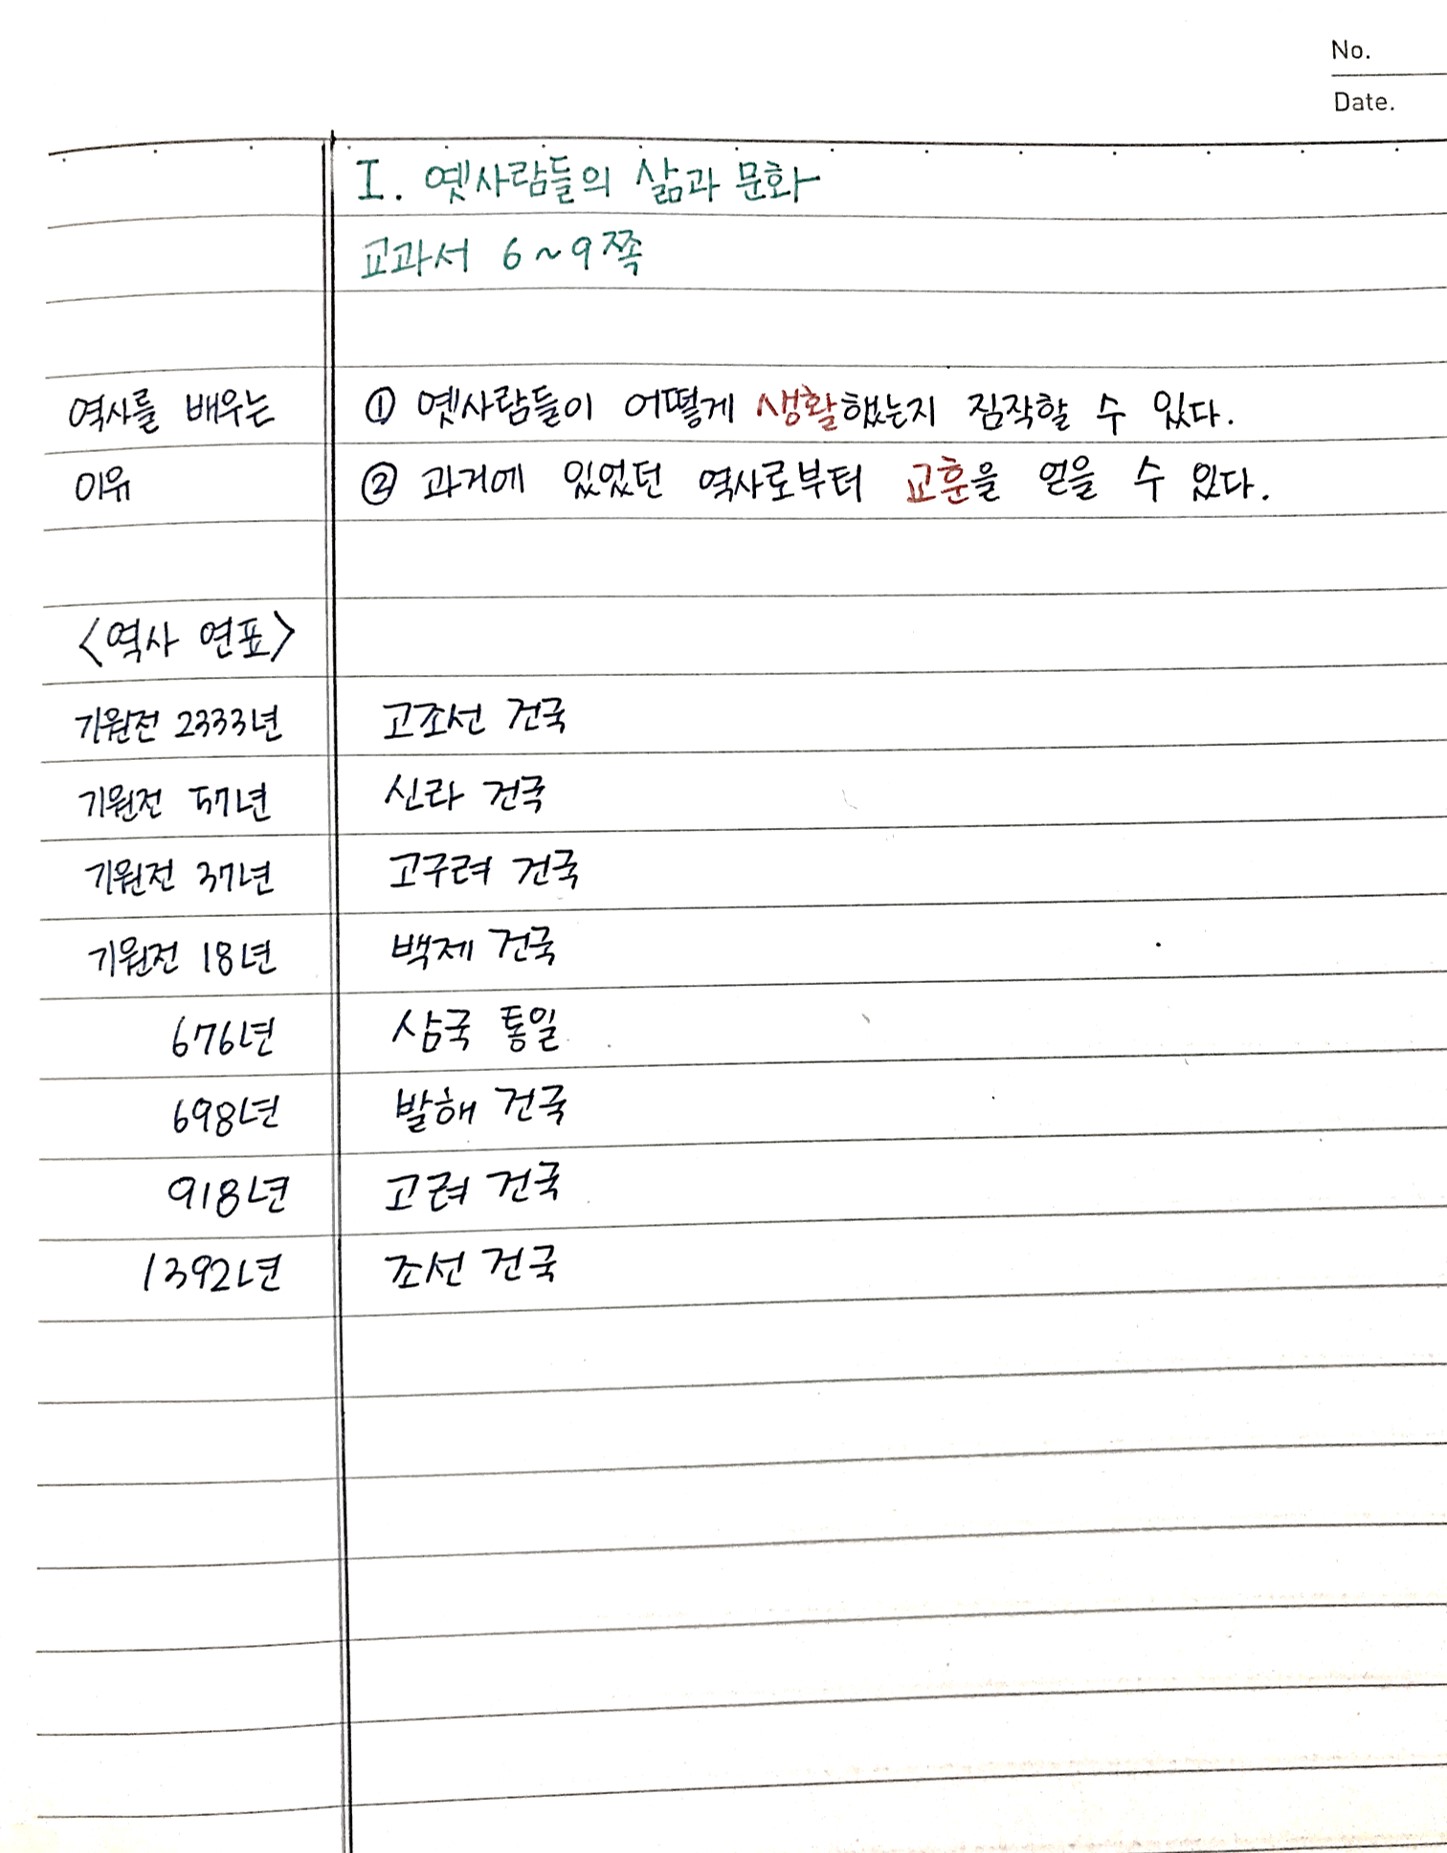 No.
Date.
I. 옛사람들의 삶과 문화
교과서 6~9쪽
역사를 배우는 ① 옛사람들이 어떻게 생활했는지 짐작할 수 있다.
이유 ② 과거에 있었던 역사로부터 교훈을 얻을 수 있다.
<역사 연표>
기원전 2333년 고조선 건국
기원전 57년 신라 건국
기원전 37년 고구려 건국
기원전 18년 백제 건국
676년 삼국 통일
698년 발해 건국
918년 고려 건국
1392년 조선 건국